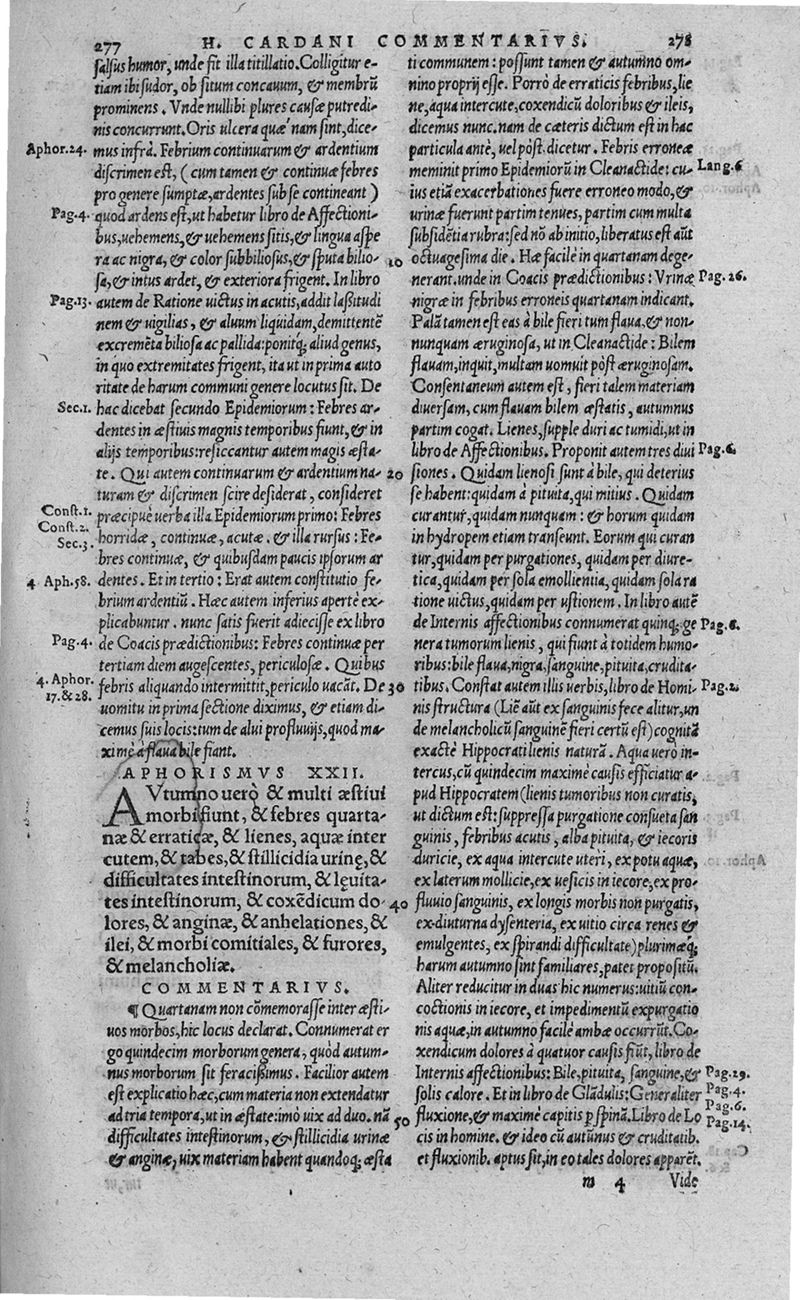 277 H. CARDANI COMMENTARIVS. 278
salsus humor, unde fit illa titillatio. Colligitur e-
tiam ibi sudor, ob situm concauum, & membrũ
prominens. Vnde nullibi plures causæ putredi-
nis concurrunt. Oris ulcera quæ nam sint, dice-
Aphor.24. mus infrà. Febrium continuarum & ardentium
discrimen est, (cum tamen & continuæ febres
pro genere sumptæ, ardentes sub se contineant)
Pag.4. quod ardens est, ut habetur libro de Affectioni-
bus, uehemens, & uehemens sitis, & lingua aspe
ra ac nigra, & color subbiliosus, & sputa bilio-
sa, & intus ardet, & exteriora frigent. In libro
Pag.13. autem de Ratione uictus in acutis, addit laßitudi
nem & uigilias, & aluum liquidam, demittentẽ
excremẽta biliosa ac pallida: ponitq; aliud genus,
in quo extremitates frigent, ita ut in prima auto
ritate de harum communi genere locutus sit. De
Sec.1. hac dicebat secundo Epidemiorum: Febres ar-
dentes in æstiuis magnis temporibus fiunt, & in
alijs temporibus: resiccantur autem magis æsta-
te. Qui autem continuarum & ardentium na-
turam & discrimen scire desiderat, consideret
Const.1. præcipuè uerba illa Epidemiorum primo: Febres
Const.2. horridæ, continuæ, acutæ. & illa rursus: Fe-
Sec.3. bres continuæ, & quibusdam paucis ipsorum ar
4 Aph.58. dentes. Et in tertio: Erat autem constitutio fe-
brium ardentiũ. Hæc autem inferius apertè ex-
plicabuntur. nunc satis fuerit adiecisse ex libro
Pag.4. de Coacis prædictionibus: Febres continuæ per
tertiam diem augescentes, periculosæ. Quibus
4. Aphor. febris aliquando intermittit, periculo uacãt. De
17. & 28. uomitu in prima sectione diximus, & etiam di-
cemus suis locis: tum de alui profluuijs, quod ma-
ximè à flaua bile fiant.
APHORISMVS XXII.
AVtumno uerò & multi æstiui
morbi fiunt, & febres quarta-
næ & erraticæ, & lienes, aquæ inter
cutem, & tabes, & stillicidia urinę, &
difficultates intestinorum, & lęuita-
tes intestinorum, & coxẽdicum do-
lores, & anginæ, & anhelationes, &
ilei, & morbi comitiales, & furores,
& melancholiæ.
COMMENTARIVS.
¶ Quartanam non cõmemorasse inter æsti-
uos morbos, hic locus declarat. Connumerat er
go quindecim morborum genera, quòd autum-
nus morborum sit feracißimus. Facilior autem
est explicatio hæc, cum materia non extendatur
ad tria tempora, ut in æstate: imò uix ad duo. nã
difficultates intestinorum, & stillicidia urinæ
& anginæ, uix materiam habent quandoq; æsta
ti communem: possunt tamen & autumno om-
nino proprij esse. Porrò de erraticis febribus, lie
ne, aqua intercute, coxendicũ doloribus & ileis,
dicemus nunc. nam de cæteris dictum est in hac
particula antè, uel pòst dicetur. Febris erroneæ
meminit primo Epidemiorũ in Cleanactide: cu- Lang.6
ius etiã exacerbationes fuere erroneo modo, &
urinæ fuerunt partim tenues, partim cum multa
subsidẽtia rubra: sed nõ ab initio, liberatus est aũt
10 octuagesima die. Hæ facilè in quartanam dege-
nerant. unde in Coacis prædictionibus: Vrinæ Pag.26.
nigræ in febribus erroneis quartanam indicant.
Palã tamen est eas à bile fieri tum flaua, & non-
nunquam æruginosa, ut in Cleanactide: Bilem
flauam, inquit, multam uomuit pòst æruginosam.
Consentaneum autem est, fieri talem materiam
diuersam, cum flauam bilem æstatis, autumnus
partim cogat. Lienes, supple duri ac tumidi, ut in
libro de Affectionibus. Proponit autem tres diui Pag.6.
20 siones. Quidam lienosi sunt à bile, qui deterius
se habent: quidam à pituita, qui mitius. Quidam
curantur, quidam nunquam: & horum quidam
in hydropem etiam transeunt. Eorum qui curan
tur, quidam per purgationes, quidam per diure-
tica, quidam per sola emollientia, quidam sola ra
tione uictus, quidam per ustionem. In libro autẽ
de Internis affectionibus connumerat quinq; ge Pag.8.
nera tumorum lienis, qui fiunt à totidem humo-
ribus: bile flaua, nigra, sanguine, pituita, crudita-
30 tibus. Constat autem illis uerbis, libro de Homi- Pag.2.
nis structura (Liẽ aũt ex sanguinis fece alitur, un
de melancholicũ sanguinẽ fieri certũ est) cognitã
exactè Hippocrati lienis naturã. Aqua uerò in-
tercus, cũ quindecim maximè causis efficiatur a-
pud Hippocratem (lienis tumoribus non curatis,
ut dictum est: suppressa purgatione consueta san
guinis, febribus acutis, alba pituita, & iecoris
duricie, ex aqua intercute uteri, ex potu aquæ,
ex laterum mollicie, ex uesicis in iecore, ex pro-
40 fluuio sanguinis, ex longis morbis non purgatis,
ex diuturna dysenteria, ex uitio circa renes &
emulgentes, ex spirandi difficultate) plurimæq́;
harum autumno sint familiares, patet propositũ.
Aliter reducitur in duas hic numerus: uitiũ con-
coctionis in iecore, et impedimentũ expurgatio
nis aquæ, in autumno facilè ambæ occurrũt. Co-
xendicum dolores à quatuor causis fiũt, libro de
Internis affectionibus: Bile, pituita, sanguine, & Pag.29.
solis calore. Et in libro de Glãdulis: Generaliter Pag.4.
50 fluxione, & maximè capitis p spinã. Libro de Lo Pag.6.
cis in homine. & ideo cũ autũnus & cruditatib. Pag.14.
et fluxionib. aptus sit, in eo tales dolores apparẽt.
m 4 Vide